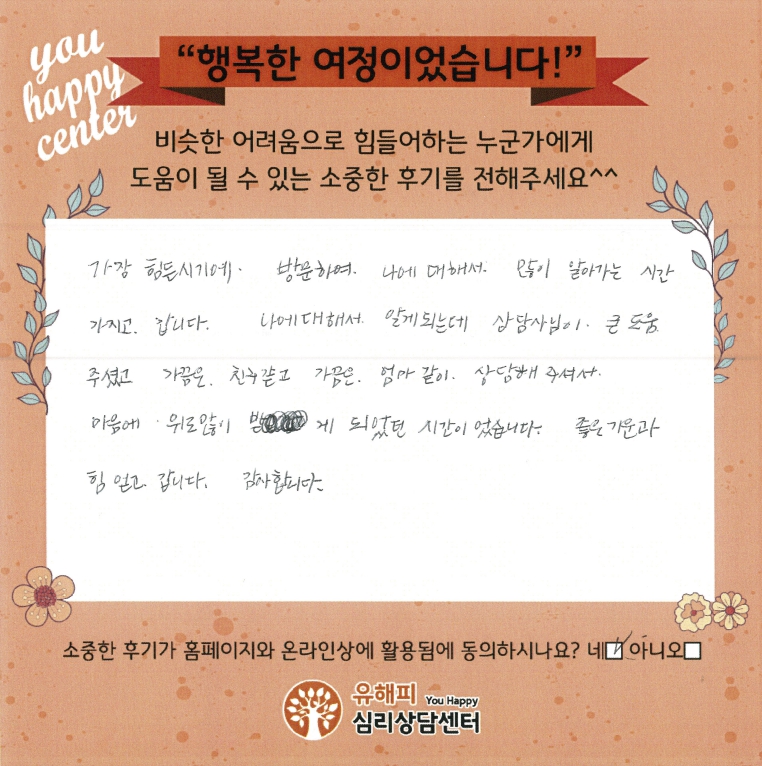 you
happy
center
“행복한 여정이었습니다!”
비슷한 어려움으로 힘들어하는 누군가에게
도움이 될 수 있는 소중한 후기를 전해주세요^^
가장 힘든시기에. 방문하여. 나에 대해서. 많이 알아가는 시간
가지고. 갑니다. 나에대해서. 알게되는데 상담사님이. 큰 도움.
주셨고 가끔은. 친구같고 가끔은. 엄마 같이. 상담해 주셔서.
마음에. 위로많이 받 게 되었던 시간이었습니다. 좋은기운과
힘 얻고. 갑니다. 감사합니다.
소중한 후기가 홈페이지와 온라인상에 활용됨에 동의하시나요? 네 아니오
유해피 You Happy
심리상담센터